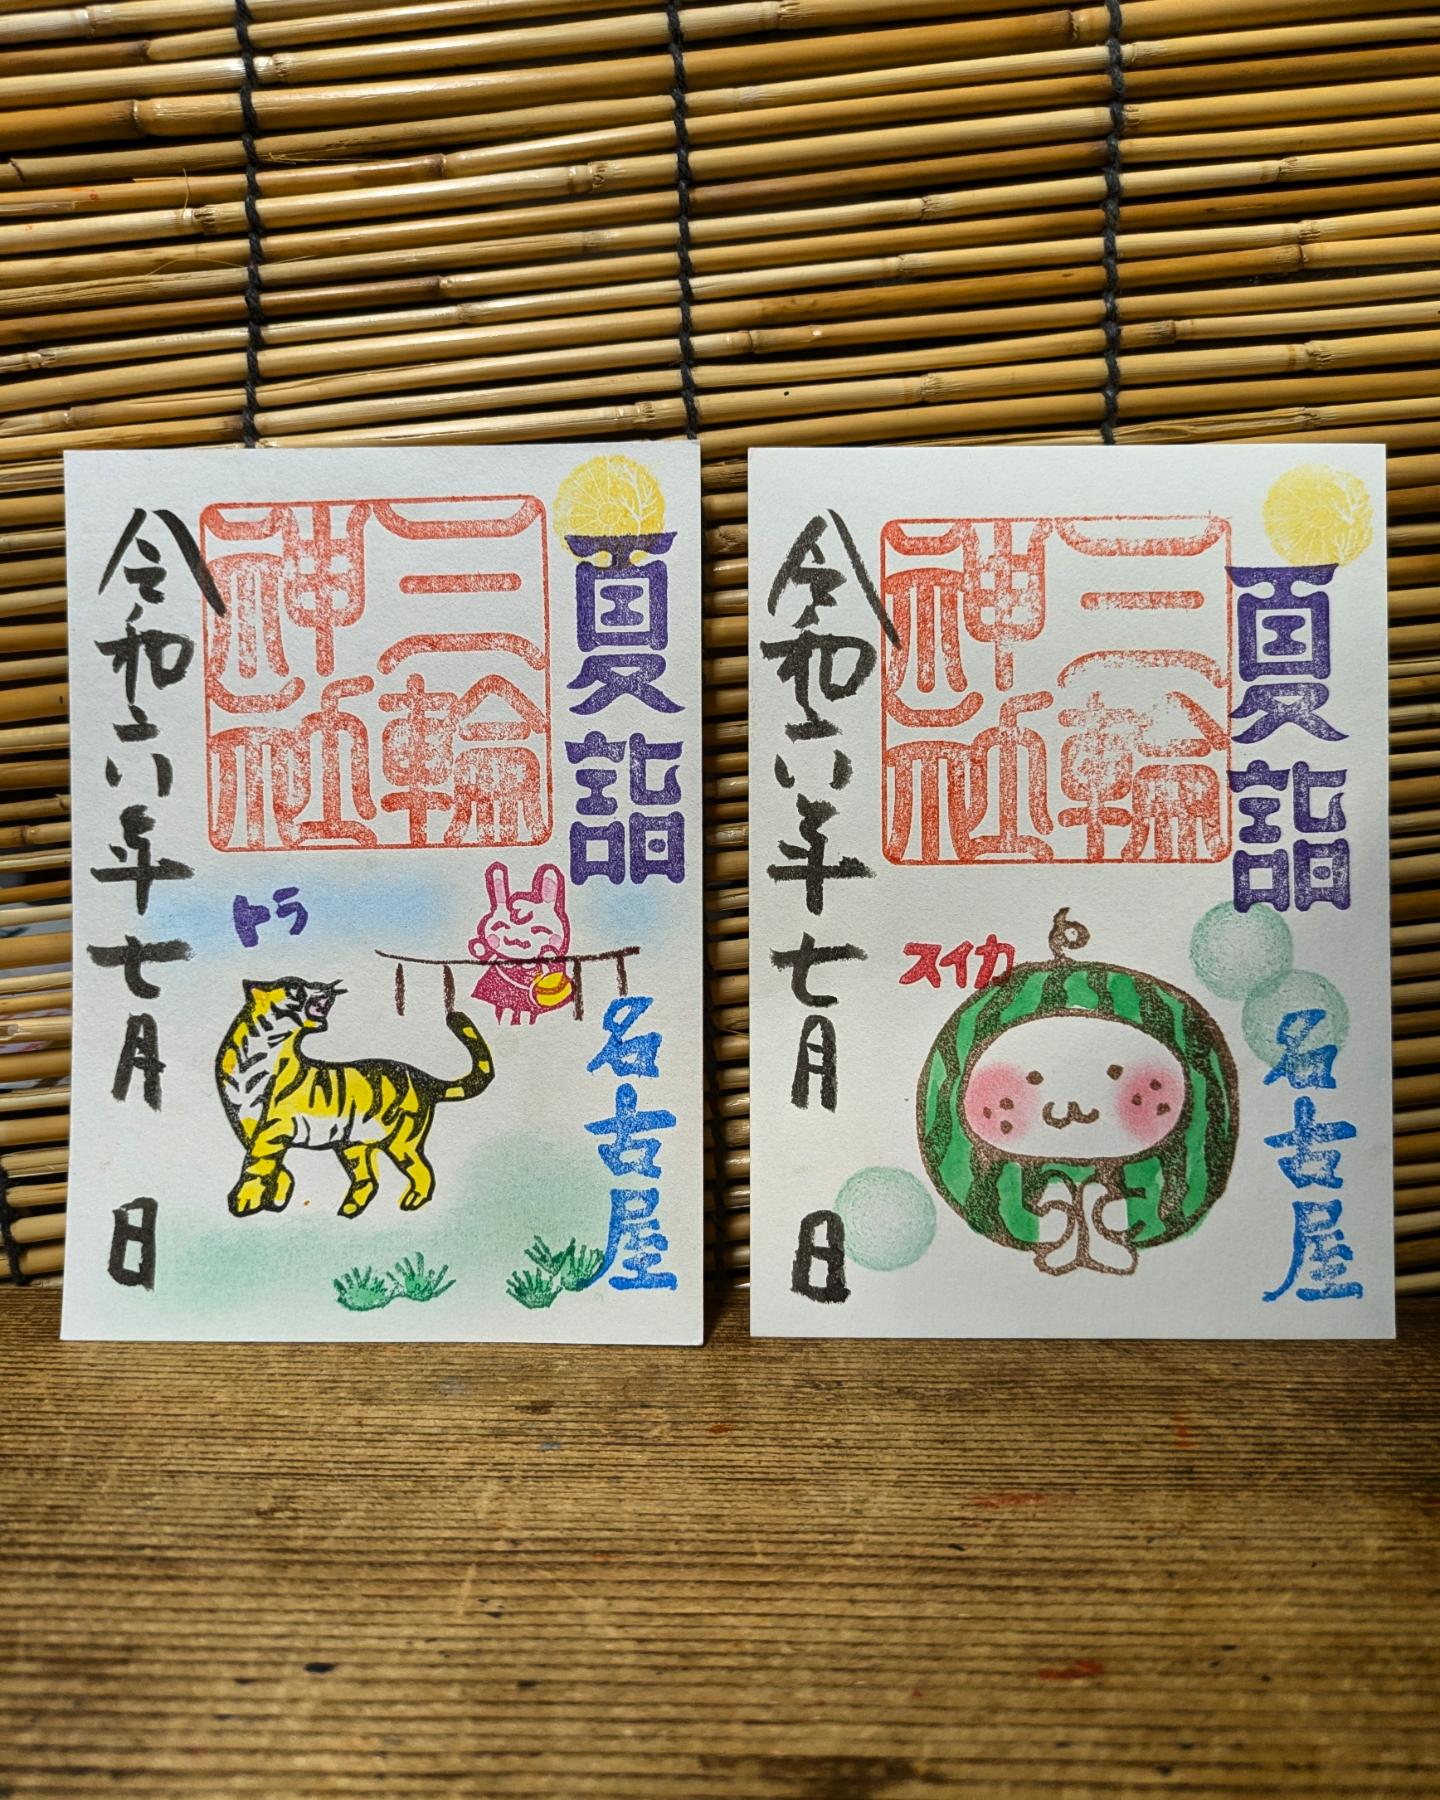 夏詣
三輪
神社
令和六年七月 日
トラ
名古屋
夏詣
三輪
神社
令和六年七月 日
スイカ
名古屋